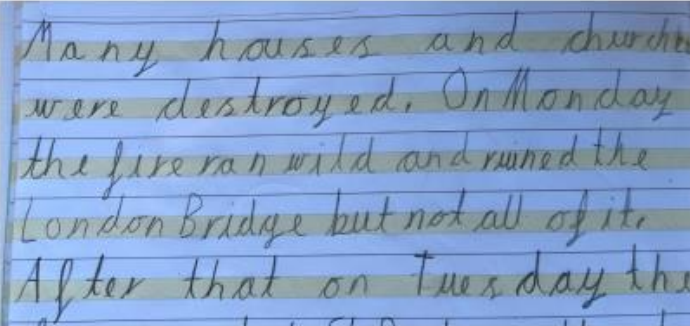 Many houses and churche
were destroyed. On Monday
the fire ran wild and ruined the
London Bridge but not all of it.
After that on Tuesday the